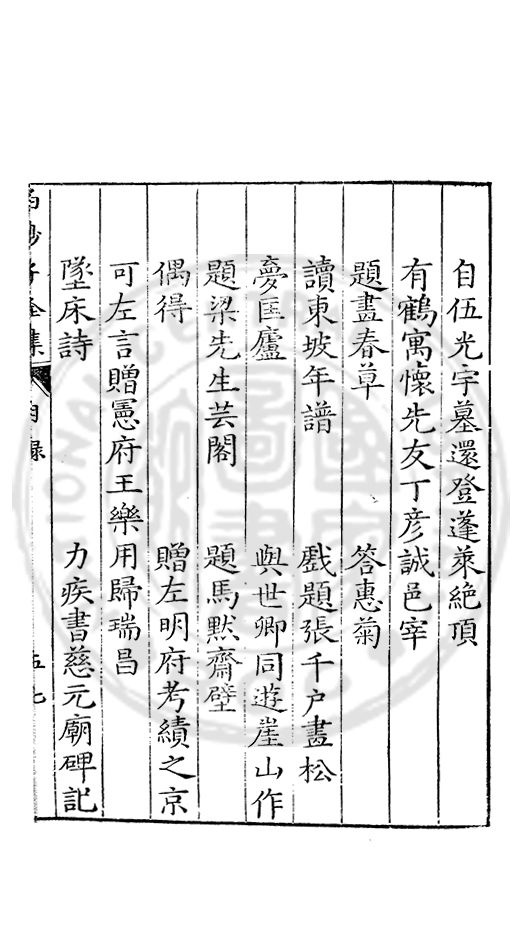 自伍光宇墓還登蓬萊絕頂
有鶴寓懷先友丁彥誠邑宰
題畫春草　答惠菊
讀東坡年譜　戲題張千户畫松
夢匡廬　與世卿同遊崖山作
題梁先生芸閣　題馬默齋壁
偶得　贈左明府考績之京
可左言贈憲府王樂用歸瑞昌
墜床詩　力疾書慈元廟碑記
白沙子全集　目録　五七